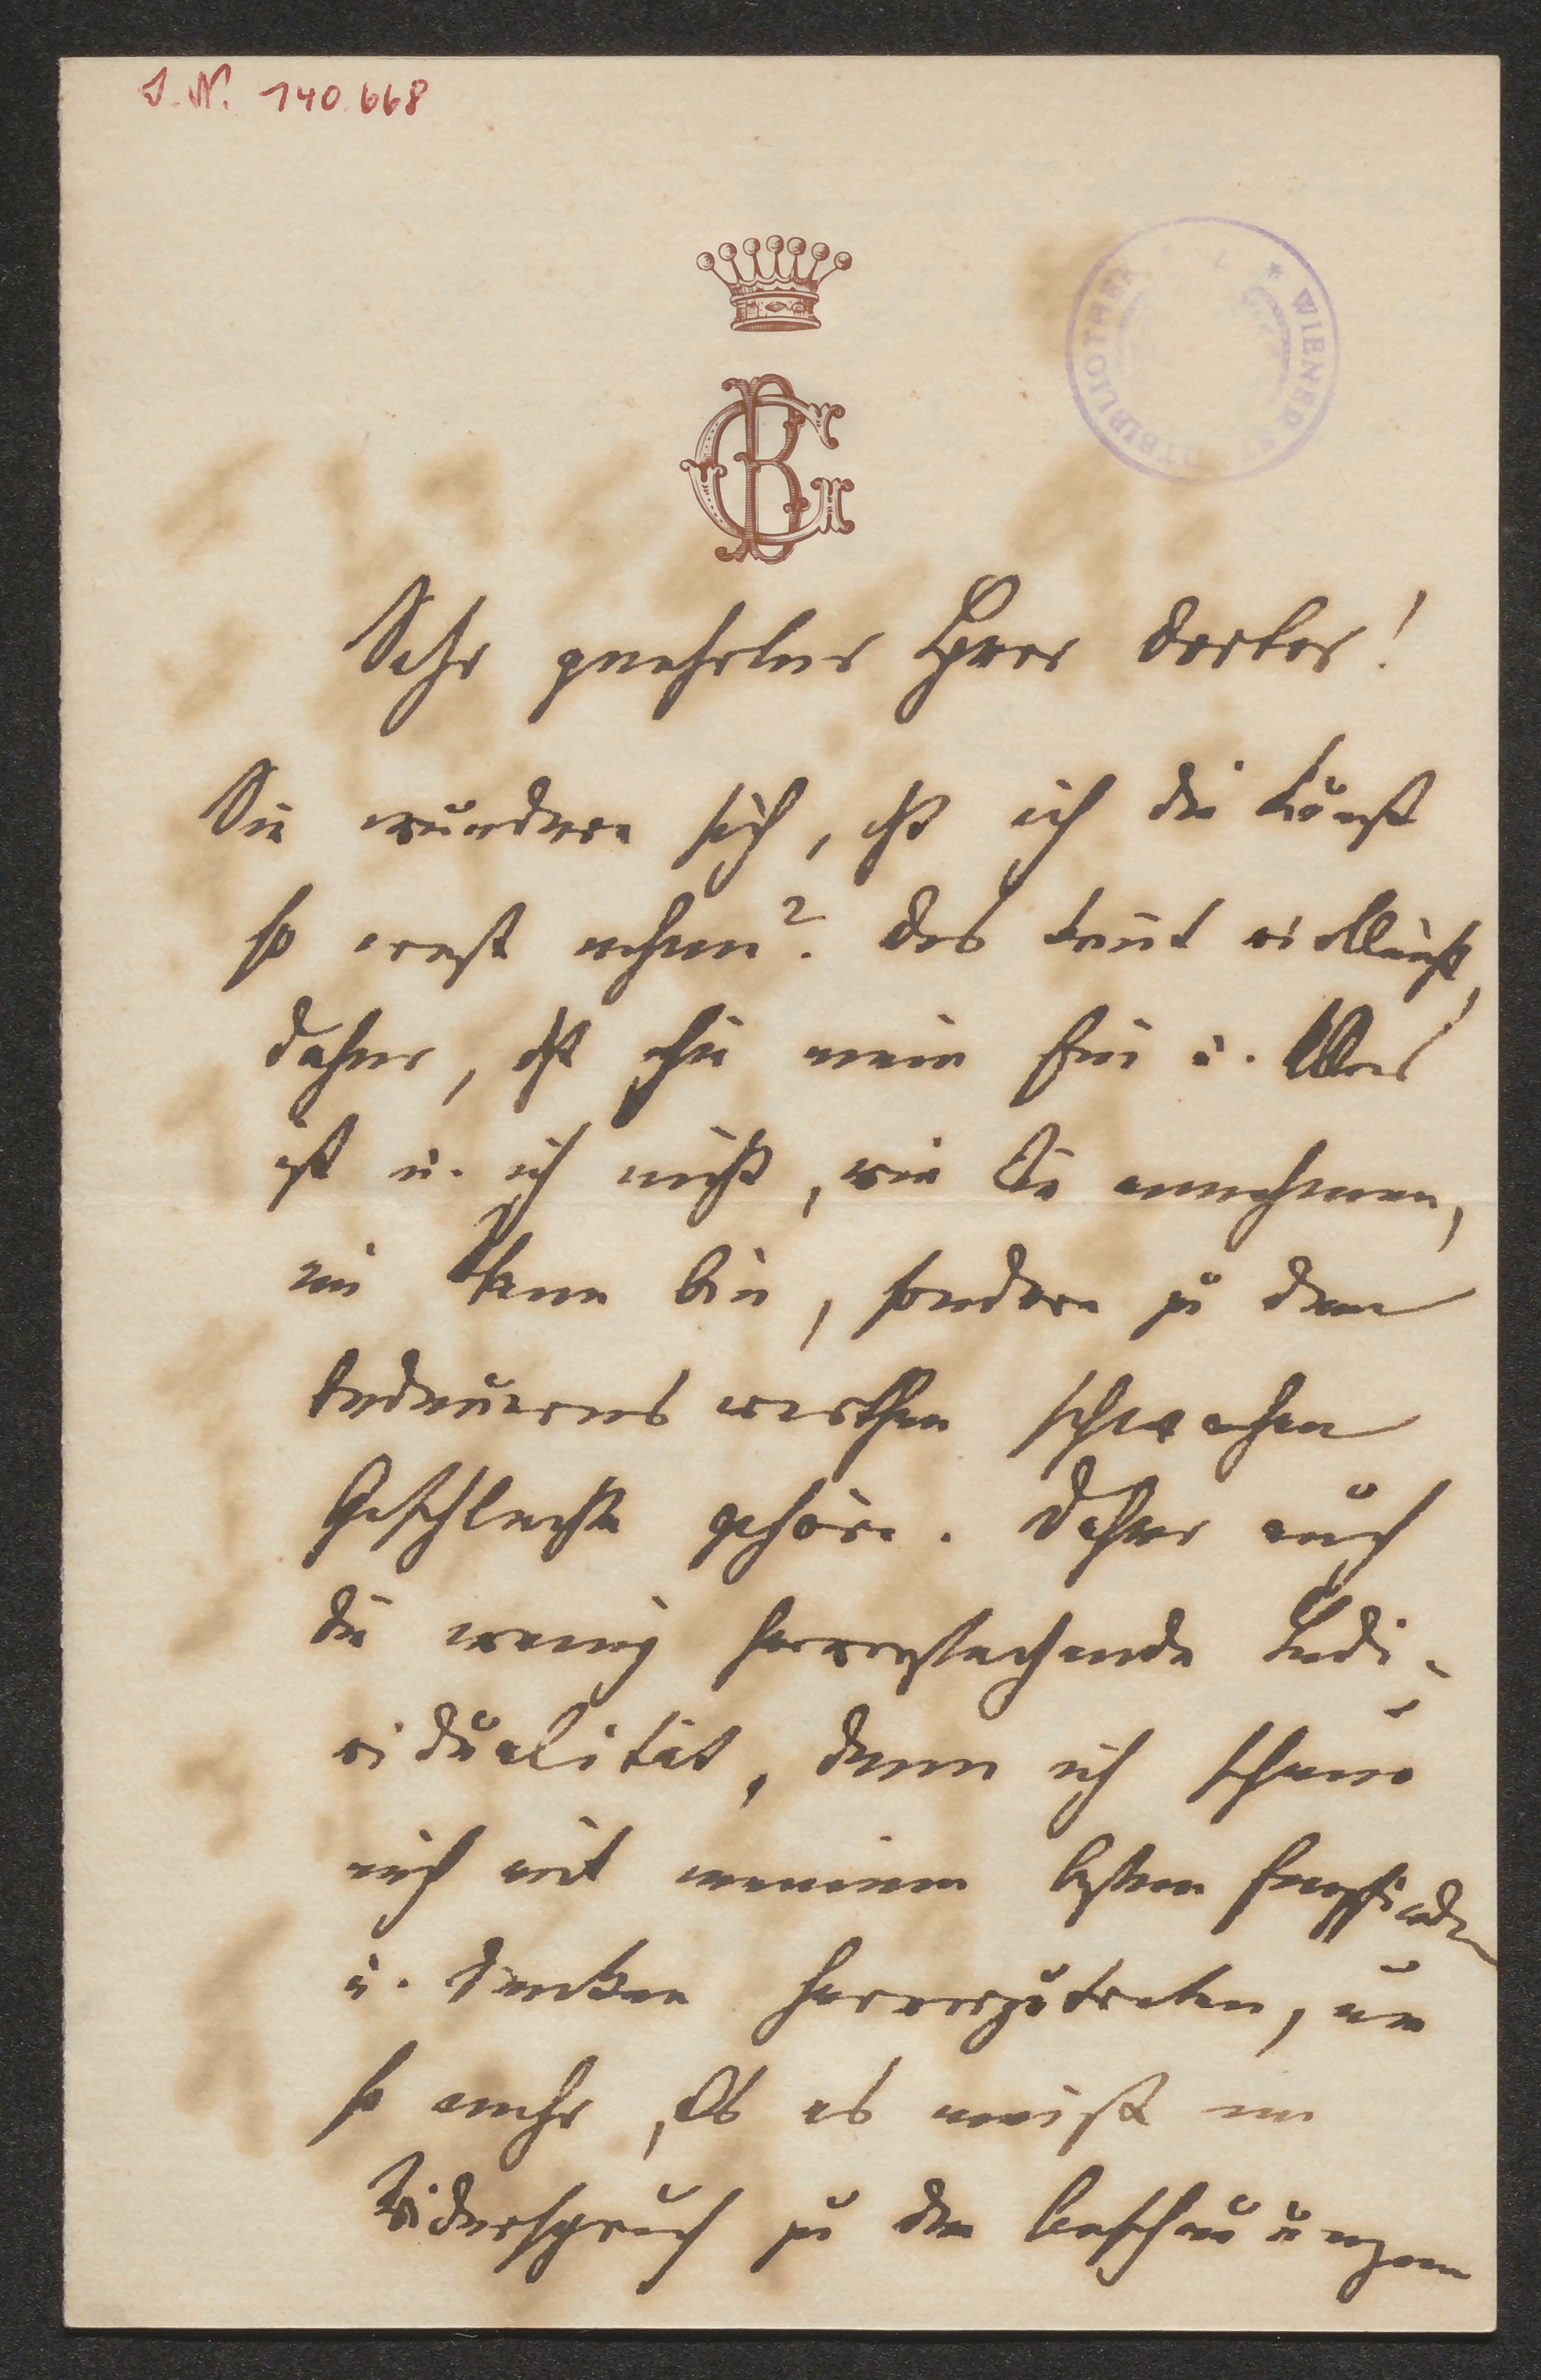 I. N. 140.668
WIENER STADTBIBLIOTHEK
BG
Sehr geehrter Herr Doctor!
Sie wundern sich, daß ich die Kunst
so ernst nehme? Das kommt vielleicht
daher, daß sie mein Ein u. Alles
ist u. ich nicht, wie Sie annehmen,
ein Mann bin, sondern zu dem
bedauernswerthen schwachen
Geschlechte gehöre. Daher auch
die wenig hervorstechende Indi-
vidualität, denn ich scheue
mich mit meinem besten Empfinden
u. Denken hervorzutreten, um
so mehr, als es meist im
Widerspruch zu den Anschauungen